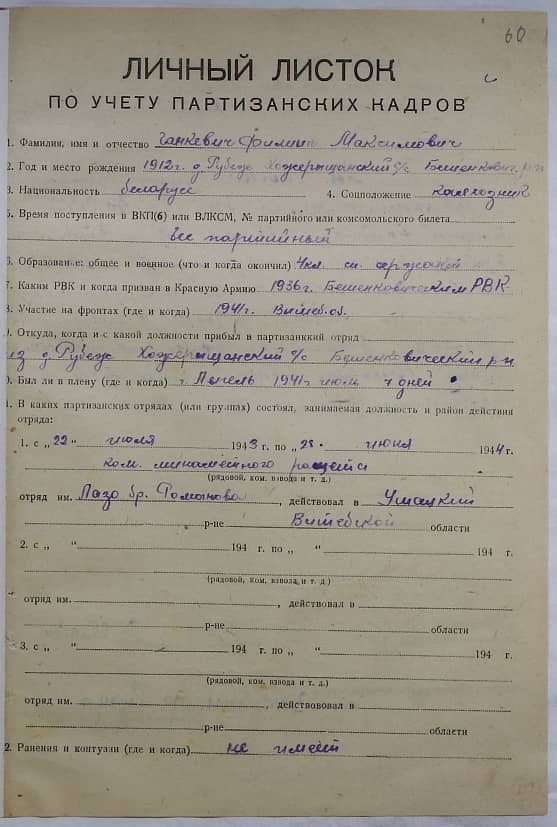 60
ЛИЧНЫЙ ЛИСТОК
ПО УЧЕТУ ПАРТИЗАНСКИХ КАДРОВ
1. Фамилия, имя и отчество Ганкевич Филипп Максимович
2. Год и место рождения 1912 г. д. Рубеж с/с Бешенкович. р-н
3. Национальность беларусс 4. Соцположение калхозник
5. Время поступления в ВКП(б) или ВЛКСМ, № партийного или комсомольского билета
бес парийийный
6. Образование: общее и военное (что и когда окончил) 4 кл.
7. Каким РВК и когда призван в Красную Армию 1936 г. Бешенковическим РВК
8. Участие на фронтах (где и когда) 1941 г. Витеб. об.
9. Откуда, когда и с какой должности прибыл в партизанский отряд
из д. Рубеж с/с Бешенковический р-н
0. Был ли в плену (где и когда) г. Лепель 1941 г. июль 7 дней
1. В каких партизанских отрядах (или группах) состоял, занимаемая должность и район действия
отряда:
1. с „ 22 “ июля 1943 г. по „ 28 “ июня 1944 г.
ком. минаметного
(рядовой, ком. взвода и т. д.)
отряд им. Лазо бр. Романова, действовал в
р-не Витебской области
2. с „ “ 194 г. по „ “ 194 г.
(рядовой, ком. взвода и т. д.)
отряд им. , действовал в
р-не области
3. с „ “ 194 г. по „ “ 194 г.
(рядовой, ком. взвода и т. д.)
отряд им. , действововал в
р-не области
2. Ранения и контузии (где и когда) не имеет